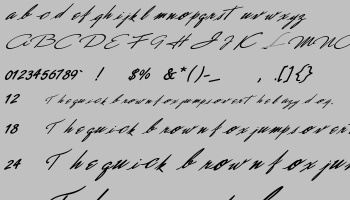 a b c d e f g h i j k l m n o p q r s t u v w x y z
A B C D E F G H I J K L M N O
0123456789` ! $% &*()-_ , .[]{}
12 The quick brown fox jumps over the lazy dog.
18 The quick brown fox jumps over
24 The quick brown fox jum